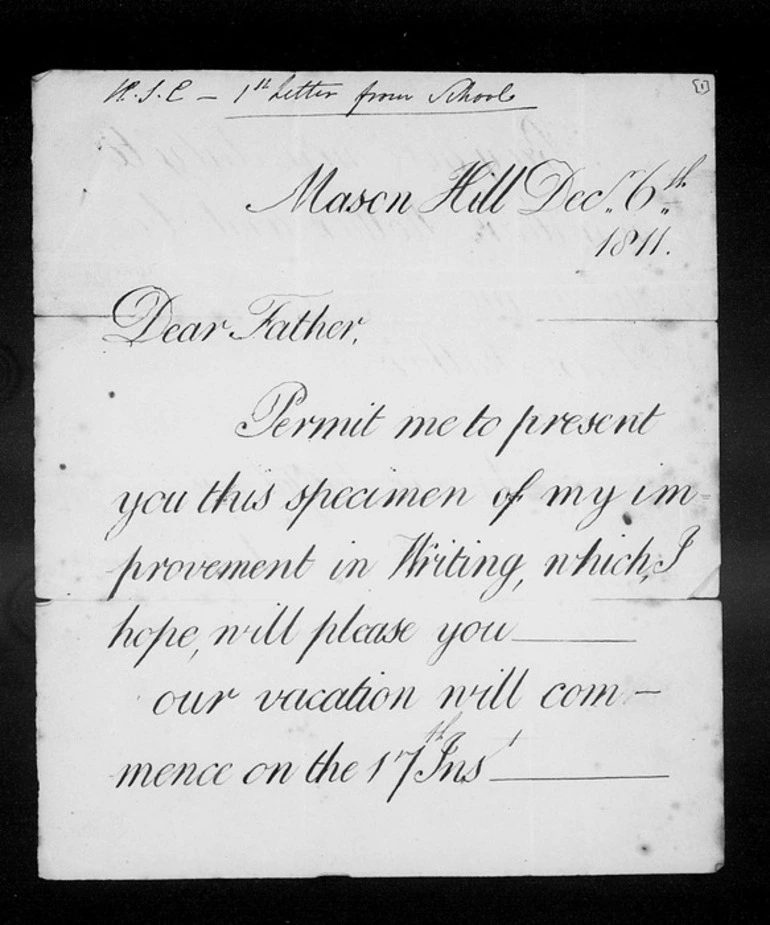 H.S.C – 1st Letter from School
[1]
Mason Hill Decr. 6th
1811.
Dear Father,
Permit me to present
you this specimen of my im-
provement in Writing, which, I
hope, will please you
our vacation will com-
mence on the 17th Inst